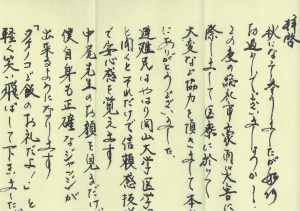 拝啓
秋になって参りましたが如何
お過しでございましょうか。
この度の総社市豪雨災害に
際しまして医療に於いて
大変なご協力を頂きまして本
にありがとうございました。
避難民はやはり岡山大学医学
と聞くとそれだけで信頼感抜
で安心感を覚えます
中尾先生のお顔を見るだけ
僕自身も正確なジャッジが
出来るようになります
「タケノコご飯のお礼だよ!」と
軽く笑い飛ばして下さいました